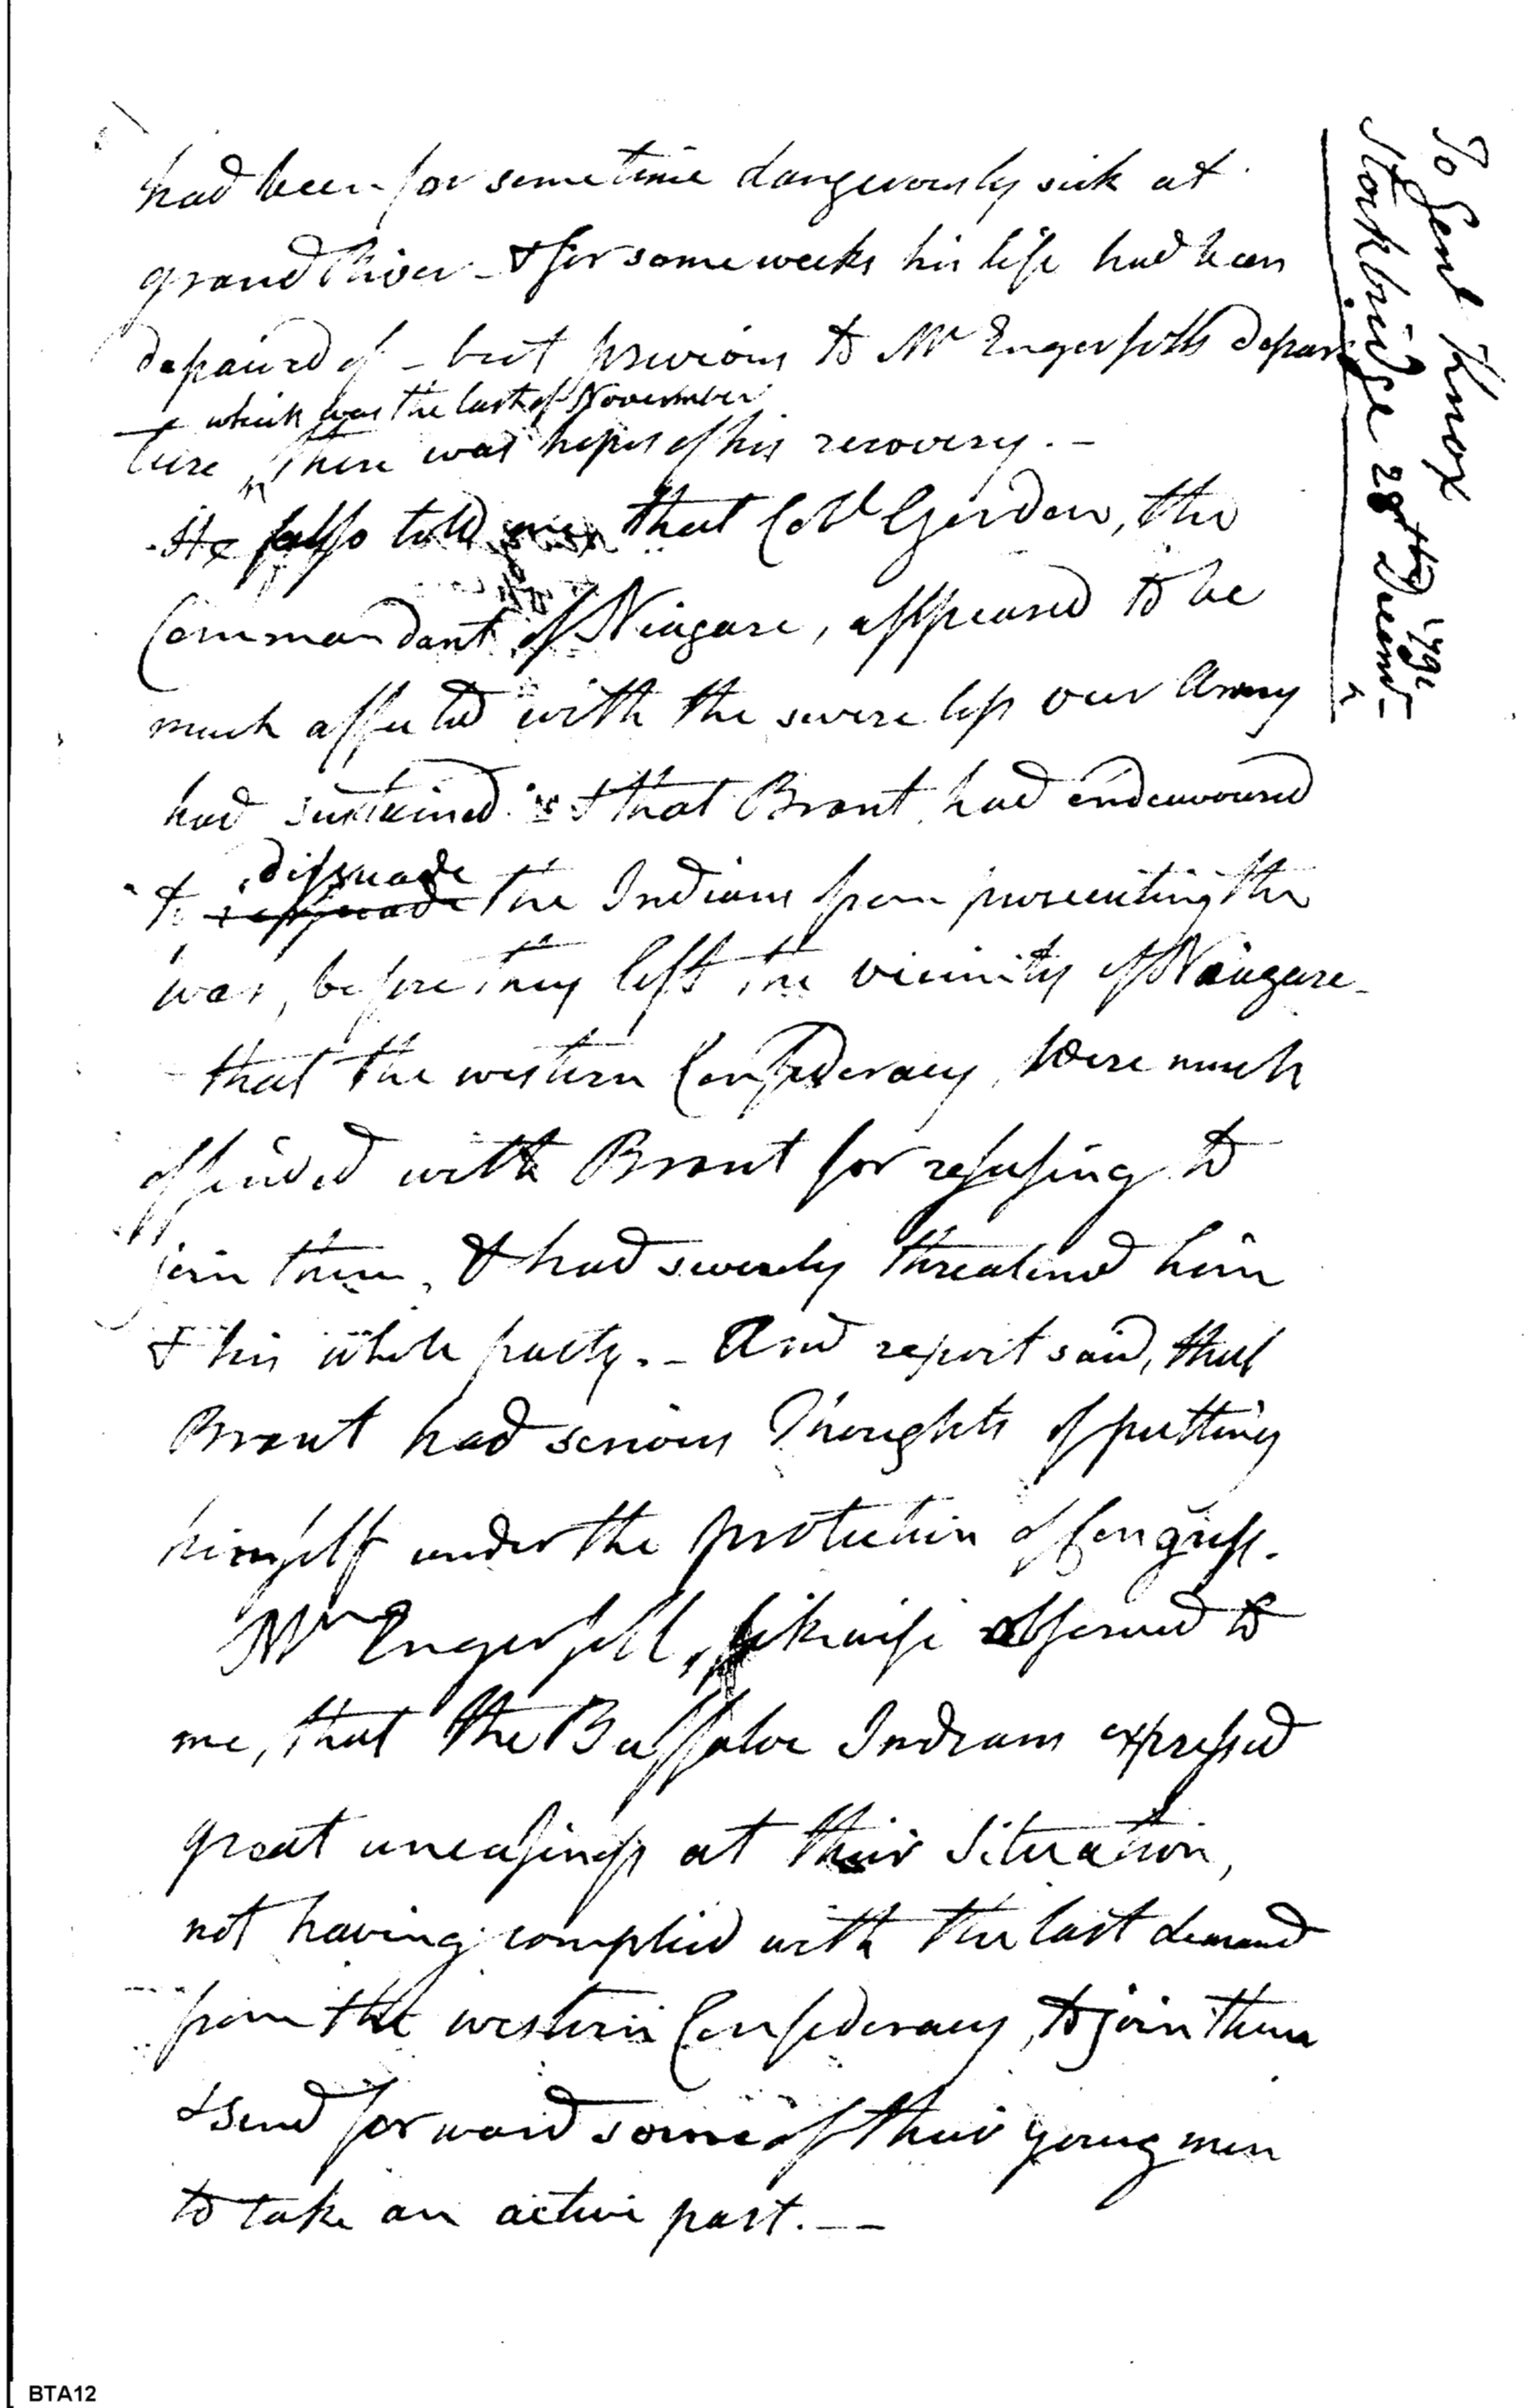 had been for sometime dangerously sick at
grand River - & for some weeks his life had been
depaired of - but previous to Mr Engersolls depar
which was the last of November
ture there was hopes of his recovery. -
He also told me that Coll Gordon, the
Commandant of Niagara, appeared to be
much affected with the severe loss our Army
had sustained & that Brant had endeavoured
dissuade
to the Indians from prosecuting the
war, before they left the vicinity of Niagara -
that the western Confederacy were much
offended with Brant for refusing to
join them, & had severely threatened him
& his whole party. - And report said, that
Brant had serious Thoughts of putting
himself under the protection of Congress.
Mr Engersoll, likewise observed to
me, that the Buffaloe Indians expressed
great uneasiness at their Situation,
not having complied with the last demand
from the western Confederacy, to join them
& send forward some of their young men
to take an active part. - -
To Genl Knox
Stockbridge 28th Decemr
1791
BTA12